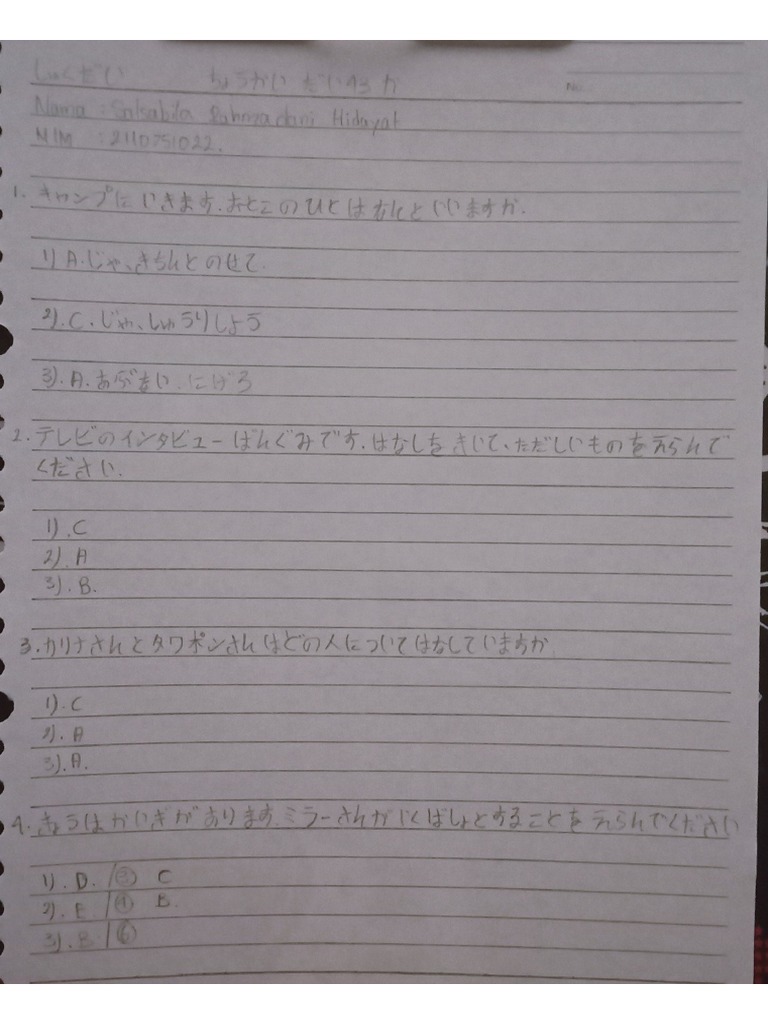 しゅくだい ちょうかい だい43か
No.
Nama : Salsabila Rahmadani Hidayat
NIM : 2110751022.
1. キャンプに いきます.おとこのひとは なんといいますか.
1) A.じゃ、きちんとのせて.
2). C. じゃ、しゅうりしよう
3). A. あぶない.にげろ
2. テレビのインタビューばんぐみです.はなしをきいて、ただしいものをえらんで
ください.
1). C
2). A
3). B.
3. カリナさんとタワポンさんはどの人についてはなしていますか
1). C
2). A
3). A.
4. きょうはかいぎがあります.ミラーさんがいくばしょとすることをえらんでください
1). D. / ③ C
2). E / ④ B.
3). B / ⑥